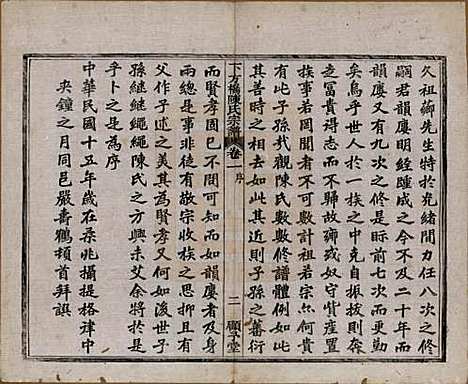 久祖卿先生特於光緒間力任八次之修
嗣君韻廔明經踵成之今不及二十年而
韻廔又有九次之修是眎前七次而更勤
矣烏乎世人於一族之中克自振拔則奔
走於四方而不常厥居其奴守貲產置
族事若罔聞者不可數計祖若宗亦何貴
有此子孫哉觀陳氏數數修譜體例如此
其善時之相去如此其近則子孫之蕃衍
下方橋陳氏宗譜 卷一 序 二 願學堂
而賢孝固已不問可知而如韻廔者及身
兩總是事非徒有敬宗收族之思抑且有
父作子述之美其為賢孝又何如後世子
孫繼繼繩繩陳氏之興未艾余將於是
乎卜之是為序
中華民國十五年歲在柔兆攝提格律中
夾鐘之月同邑嚴壽鶴頓首拜譔